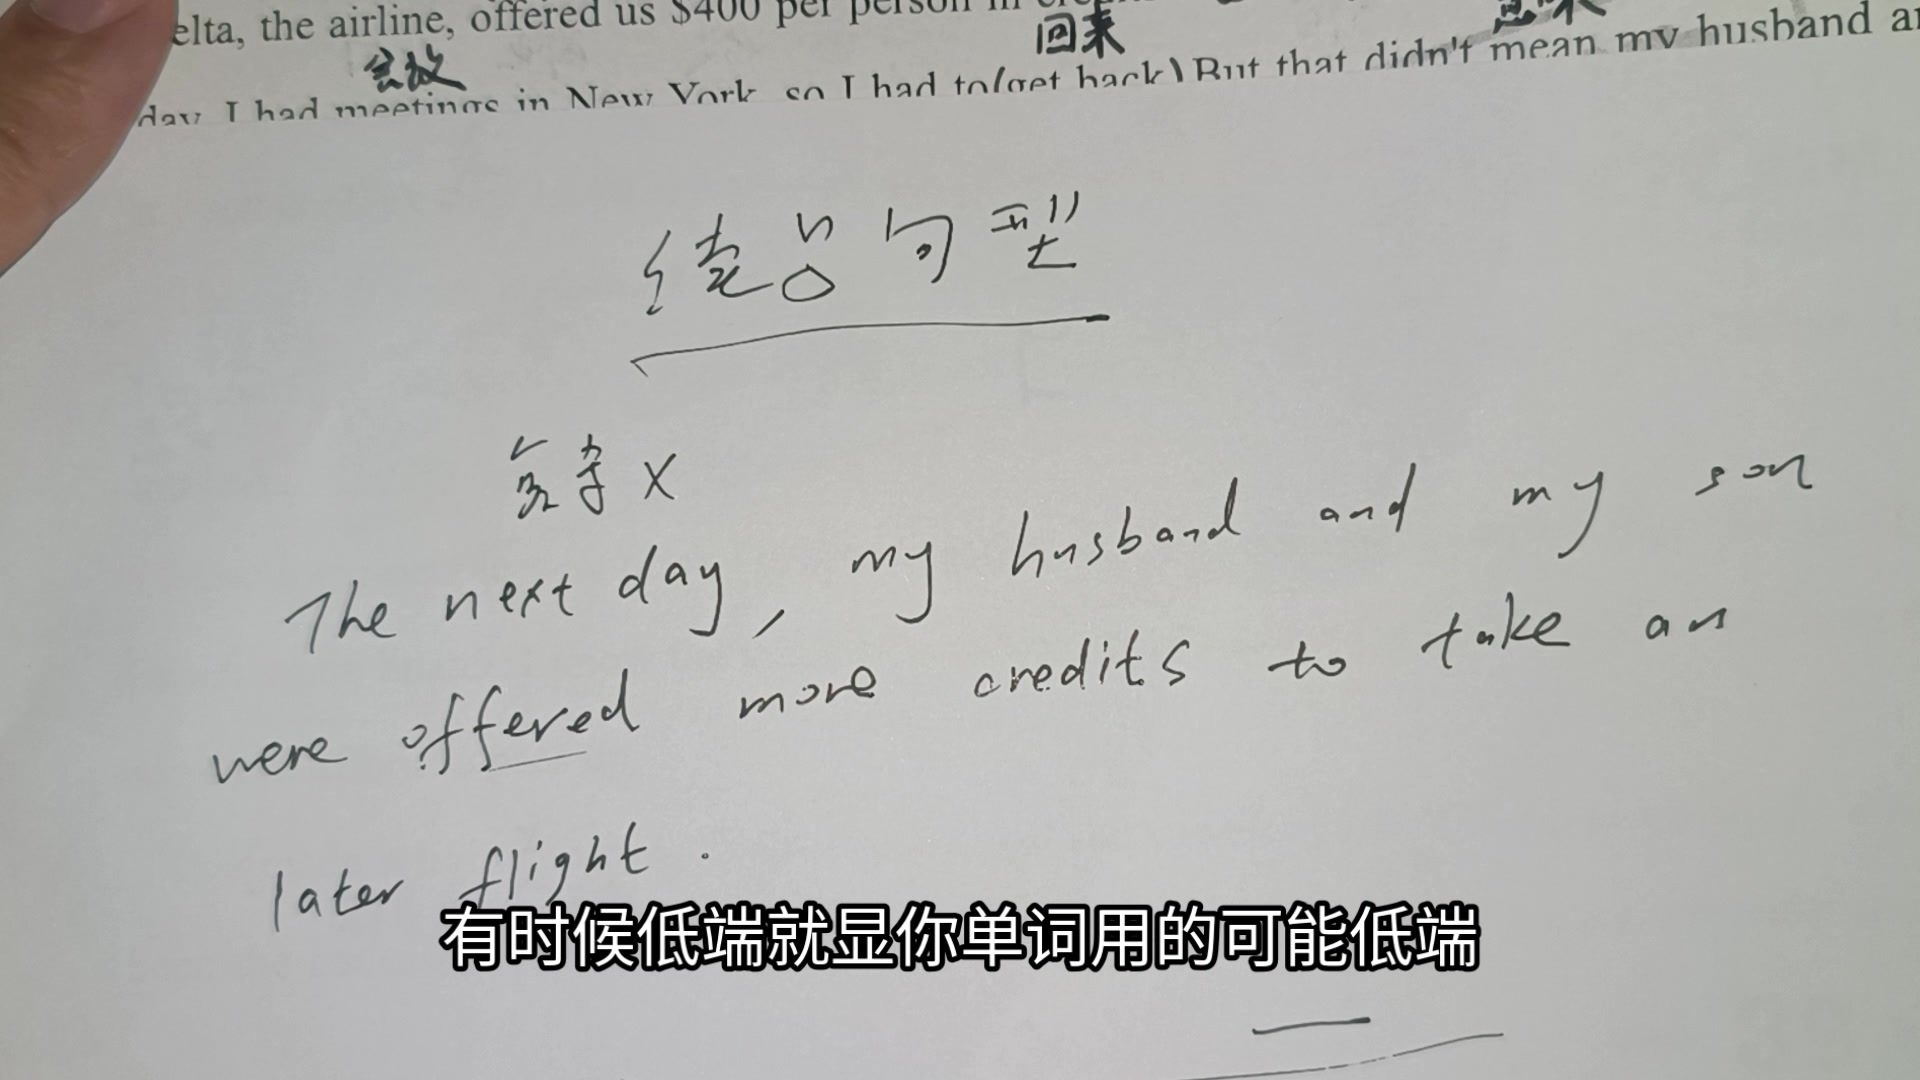 elta, the airline, offered us $400 per person in
会议
回来
day I had meetings in New York so I had to(get back) But that didn't mean my husband a
续写句型
The next day, my husband and my son
were offered more credits to take an
later flight.
有时候低端就显你单词用的可能低端